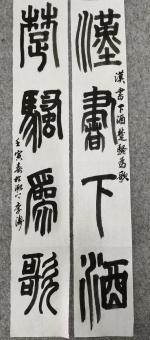 漢書下酒
楚騷爲歌
漢書下酒楚騷為歌
壬寅春